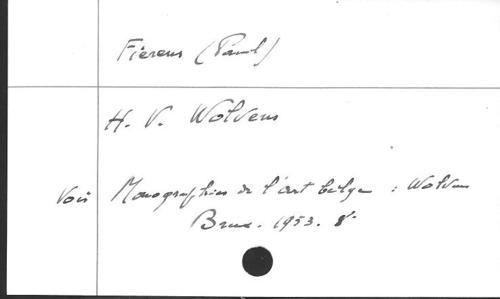 Fierens (Paul)
H. V. Wolvens
Voir Monographies de l'art belge : Wolvens
Brux. 1953. 8°